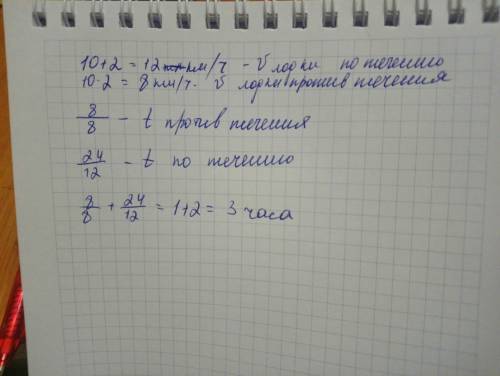 10+2 = 12 км/ч - V лодки по течению
10-2 = 8 км/ч. V лодки против течения
8/8 - t против течения
24/12 - t по течению
8/8 + 24/12 = 1+2 = 3 часа